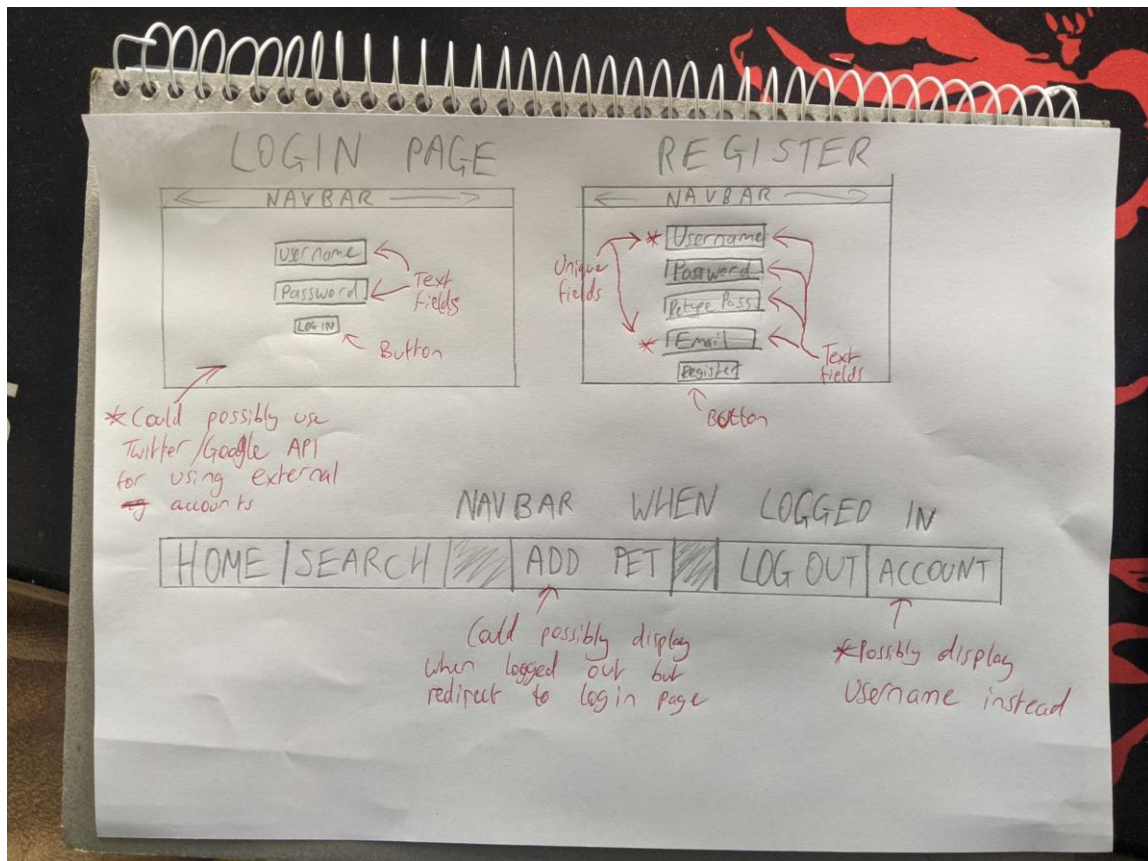 LOGIN PAGE
NAVBAR
Username
Password
LOGIN
Text
fields
Button
*Could possibly use
Twitter/Google API
for using external
accounts
REGISTER
NAVBAR
* Username
Password
Retype Pass.
* Email
Register
Unique
fields
Text
fields
Button
NAVBAR WHEN LOGGED IN
HOME SEARCH ADD PET LOG OUT ACCOUNT
Could possibly display
when logged out but
redirect to login page
*Possibly display
Username instead